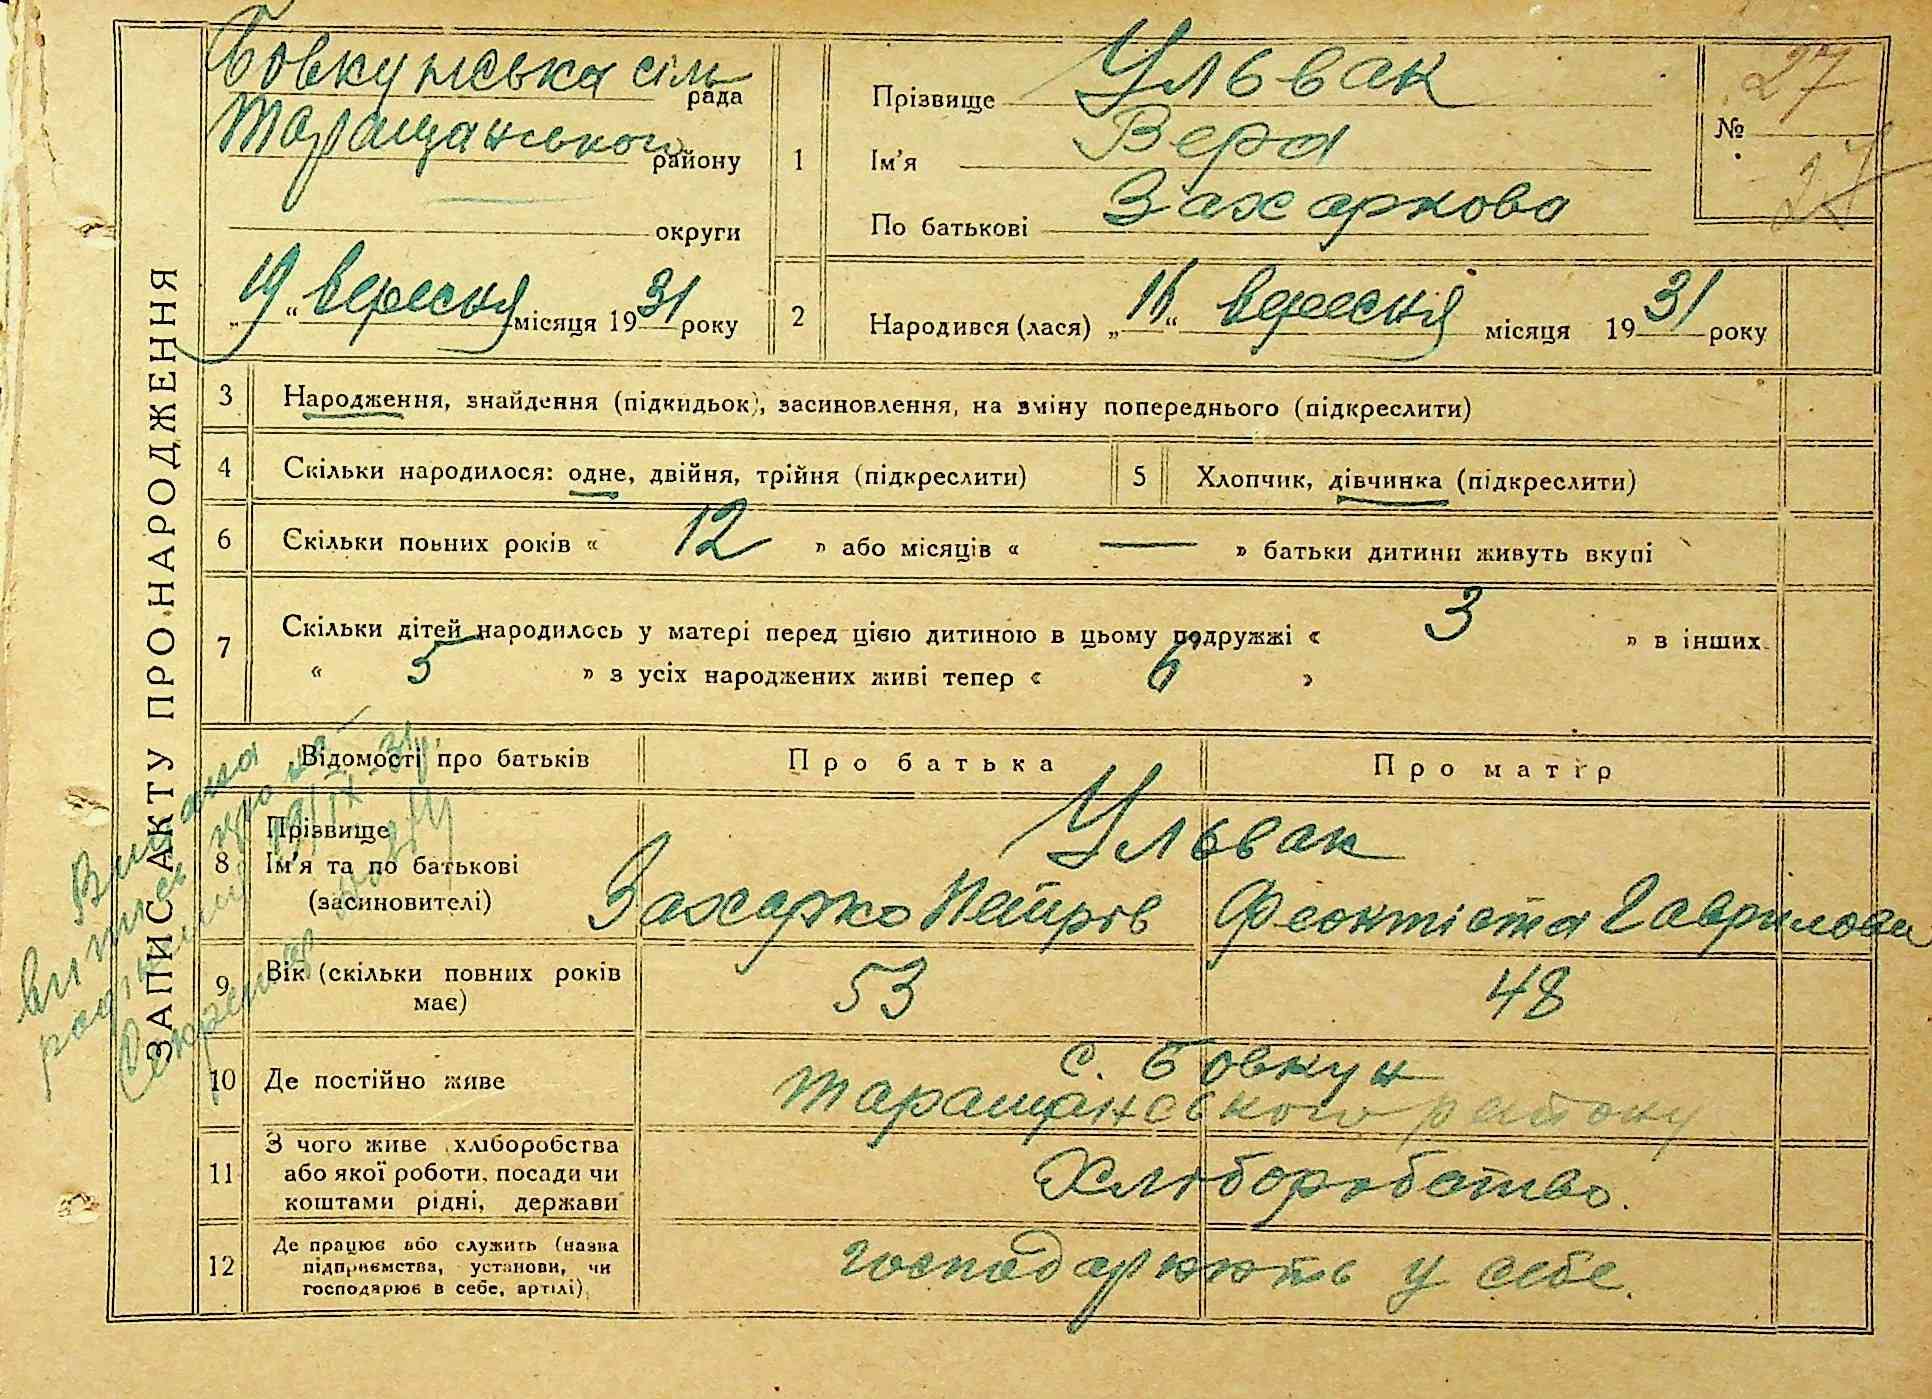 ЗАПИС АКТУ ПРО НАРОДЖЕННЯ
Бовкунська сіль
рада
Таращанського району
округи
„19“ вересня місяця 1931 року
1
Прізвище Ульвак
Ім'я Вера
По батькові Захаркова
№ 27
27
2
Народився (лася) „16“ вересня місяця 1931 року
3 Народження, знайдення (підкидьок), засиновлення, на зміну попереднього (підкреслити)
4 Скільки народилося: одне, двійня, трійня (підкреслити)
5 Хлопчик, дівчинка (підкреслити)
6 Скільки повних років « 12 » або місяців « — » батьки дитини живуть вкупі
7 Скільки дітей народилось у матері перед цією дитиною в цьому подружжі « 3 » в інших
« 5 » з усіх народжених живі тепер « 6 »
Відомості про батьків Про батька Про матір
8 Прізвище
Ім'я та по батькові
(засиновителі)
Ульвак
Захарко Петрів Феоктіста Гаврилова
9 Вік (скільки повних років
має)
53 48
10 Де постійно живе
с. Бовкун
Таращанського району
11 З чого живе хліборобства
або якої роботи, посади чи
коштами рідні, держави
Хліборобство.
12 Де працює або служить (назва
підприємства, установи, чи
господарює в себе, артілі)
господарюють у себе.
Видана
витись про на-
19/IX-31р.
Секретар